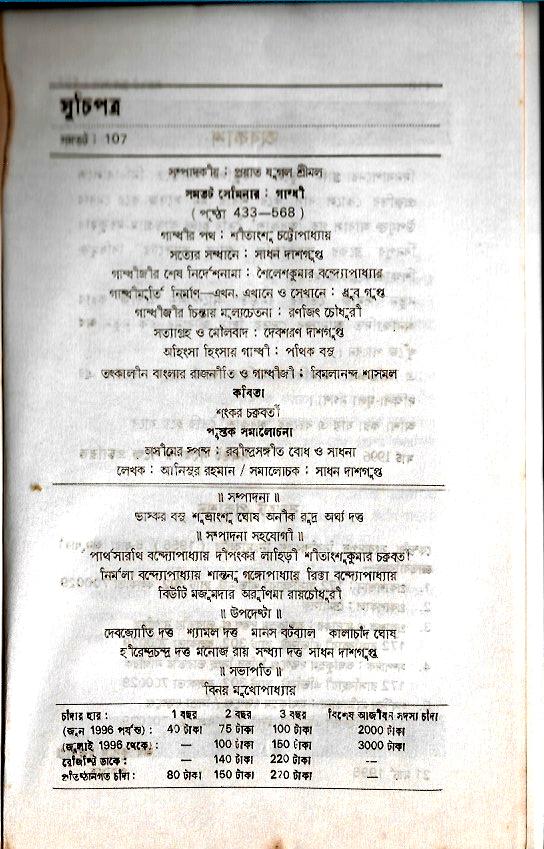 সূচিপত্র
সমতট : 107
সম্পাদকীয় : প্রয়াত যুগল শ্রীমল
সমতট সেমিনার : গান্ধী
( পৃষ্ঠা 433—568 )
গান্ধীর পথ : শীতাংশু চট্টোপাধ্যায়
সত্যের সন্ধানে : সাধন দাশগুপ্ত
গান্ধীজীর শেষ নির্দেশনামা : শৈলেশকুমার বন্দ্যোপাধ্যায়
গান্ধীমূর্তি নির্মাণ—এখন, এখানে ও সেখানে : ধ্রুব গুপ্ত
গান্ধীজীর চিন্তায় মূল্যচেতনা : রণজিৎ চৌধুরী
সত্যাগ্রহ ও মৌলবাদ : দেবশরণ দাশগুপ্ত
অহিংসা হিংসার গান্ধী : পথিক বসু
তৎকালীন বাংলার রাজনীতি ও গান্ধীজী : বিমলানন্দ শাসমল
কবিতা
শংকর চক্রবর্তী
পুস্তক সমালোচনা
অসীমের স্পন্দ : রবীন্দ্রসঙ্গীত বোধ ও সাধনা
লেখক : আনিসুর রহমান / সমালোচক : সাধন দাশগুপ্ত
॥ সম্পাদনা ॥
ভাস্কর বসু শুভাংশু ঘোষ অনীক রুদ্র অর্ঘ্য দত্ত
॥ সম্পাদনা সহযোগী ॥
পার্থসারথি বন্দ্যোপাধ্যায় দীপংকর লাহিড়ী শীতাংশুকুমার চক্রবর্তী
নির্মলা বন্দ্যোপাধ্যায় শান্তনু গঙ্গোপাধ্যায় রিক্তা বন্দ্যোপাধ্যায়
বিউটি মজুমদার অরুণিমা রায়চৌধুরী
॥ উপদেষ্টা ॥
দেবজ্যোতি দত্ত শ্যামল দত্ত মানস বটব্যাল কালাচাঁদ ঘোষ
হীরেন্দ্রচন্দ্র দত্ত মনোজ রায় সন্ধ্যা দত্ত সাধন দাশগুপ্ত
॥ সভাপতি ॥
বিনয় মুখোপাধ্যায়
চাঁদার হার : 1 বছর 2 বছর 3 বছর বিশেষ আজীবন সদস্য চাঁদা
(জুন 1996 পর্যন্ত) : 40 টাকা 75 টাকা 100 টাকা 2000 টাকা
(জুলাই 1996 থেকে) : — 100 টাকা 150 টাকা 3000 টাকা
রেজিস্ট্রি ডাকে : — 140 টাকা 220 টাকা —
প্রতিষ্ঠানগত চাঁদা : 80 টাকা 150 টাকা 270 টাকা —